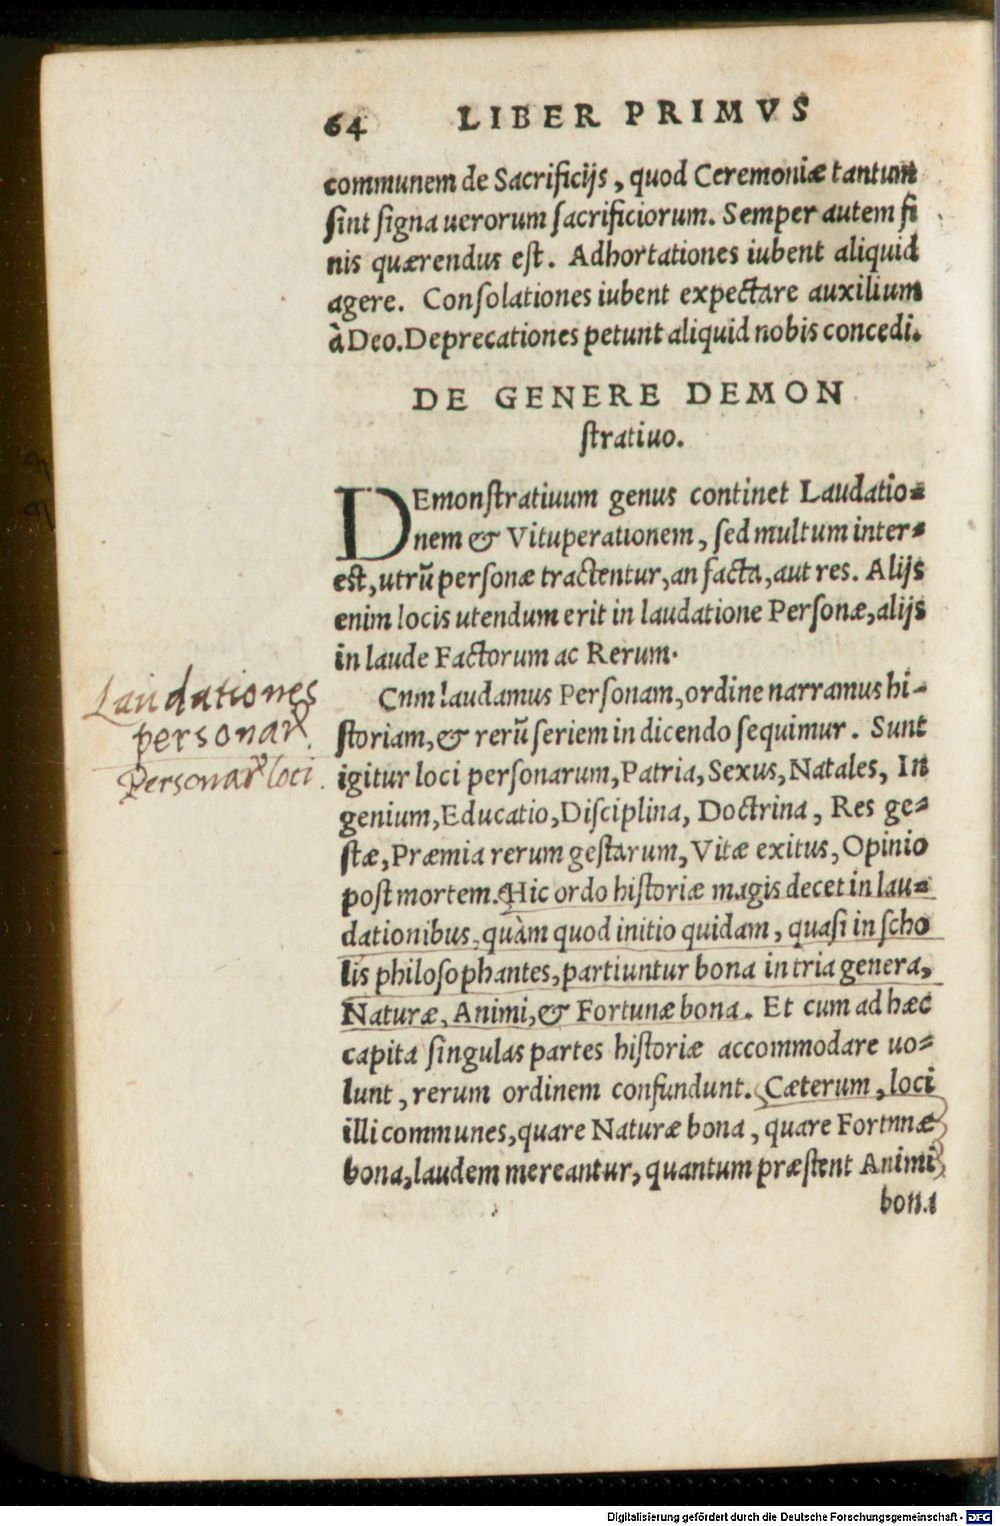 64 LIBER PRIMVS
communem de Sacrificijs, quod Ceremoniæ tantum
sint signa uerorum sacrificiorum. Semper autem fi
nis quærendus est. Adhortationes iubent aliquid
agere. Consolationes iubent expectare auxilium
à Deo. Deprecationes petunt aliquid nobis concedi.
DE GENERE DEMON
stratiuo.
DEmonstratiuum genus continet Laudatio=
nem & Vituperationem, sed multum inter=
est, utrũ personæ tractentur, an facta, aut res. Alijs
enim locis utendum erit in laudatione Personæ, alijs
in laude Factorum ac Rerum.
Cnm laudamus Personam, ordine narramus hi-
storiam, & rerũ seriem in dicendo sequimur. Sunt
igitur loci personarum, Patria, Sexus, Natales, In
genium, Educatio, Disciplina, Doctrina, Res ge=
stæ, Præmia rerum gestarum, Vitæ exitus, Opinio
post mortem. Hic ordo historiæ magis decet in lau=
dationibus, quàm quod initio quidam, quasi in scho
lis philosophantes, partiuntur bona in tria genera,
Naturæ, Animi, & Fortunæ bona. Et cum ad hæc
capita singulas partes historiæ accommodare uo=
lunt, rerum ordinem confundunt. Cæterum, loci
illi communes, quare Naturæ bona, quare Fortnnæ
bona, laudem mereantur, quantum præstent Animi
bona
Laudationes
personaꝝ.
Personaꝝ loci.
Digitalisierung gefördert durch die Deutsche Forschungsgemeinschaft - DFG